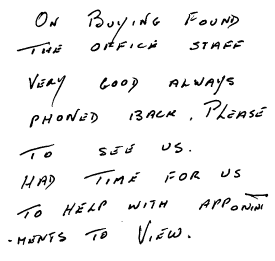 ON BUYING FOUND
THE OFFICE STAFF
VERY GOOD ALWAYS
PHONED BACK, PLEASE
TO SEE US.
HAD TIME FOR US
TO HELP WITH APPOINT
-MENTS TO VIEW.